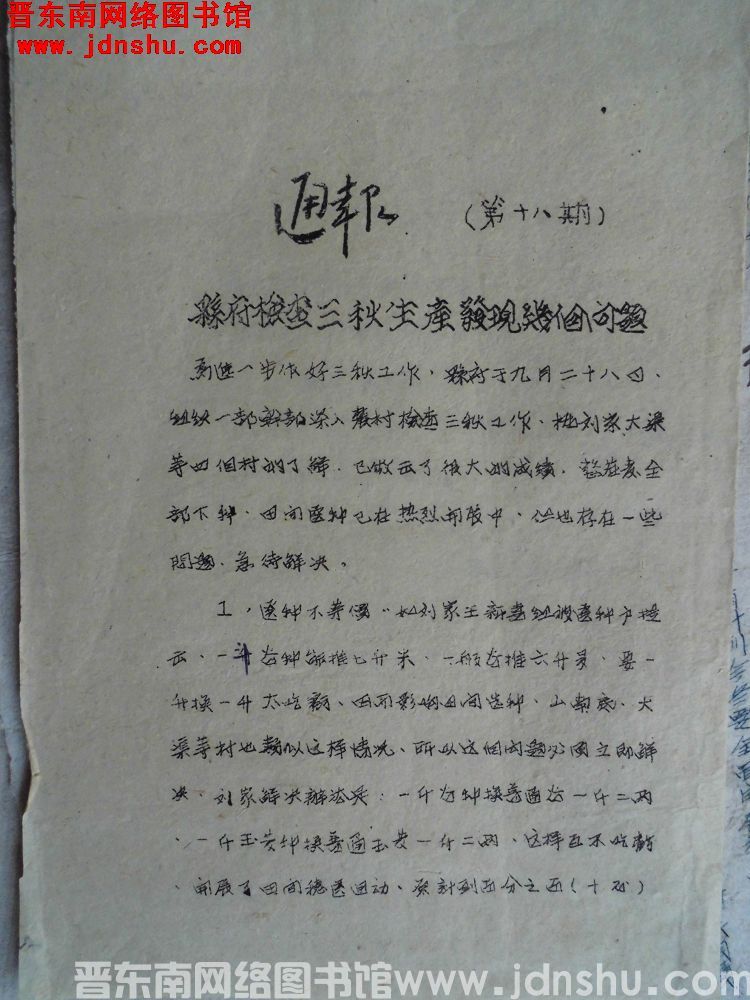 晋东南网络图书馆
www.jdnshu.com
通報
（第十八期）
縣府檢查三秋生產發現幾個问题
為進一步作好三秋工作，縣府于九月二十八日、
組织一部幹部深入農村檢查三秋工作、据刘家大渠
等四個村的了解，已做出了很大的成績，蔴荏麦全
部下种、田间選种已在热烈開展中，但也存在一些
問題、急待解决。
1，選种不等價，如刘家王新喜組被選种户提
出、一斗谷种能推七升米、一般谷推六升多，要一
升換一升太吃虧、因而影响田间选种、山南底、大
渠等村也類似这样情况、所以这個问题必須立即解
决、刘家解决辦法是：一斤谷种換普通谷一斤二两
、一斤玉茭种換普通玉茭一斤二两、这样互不吃虧
、開展了田间穗選运动、
晋东南网络图书馆www.jdnshu.com